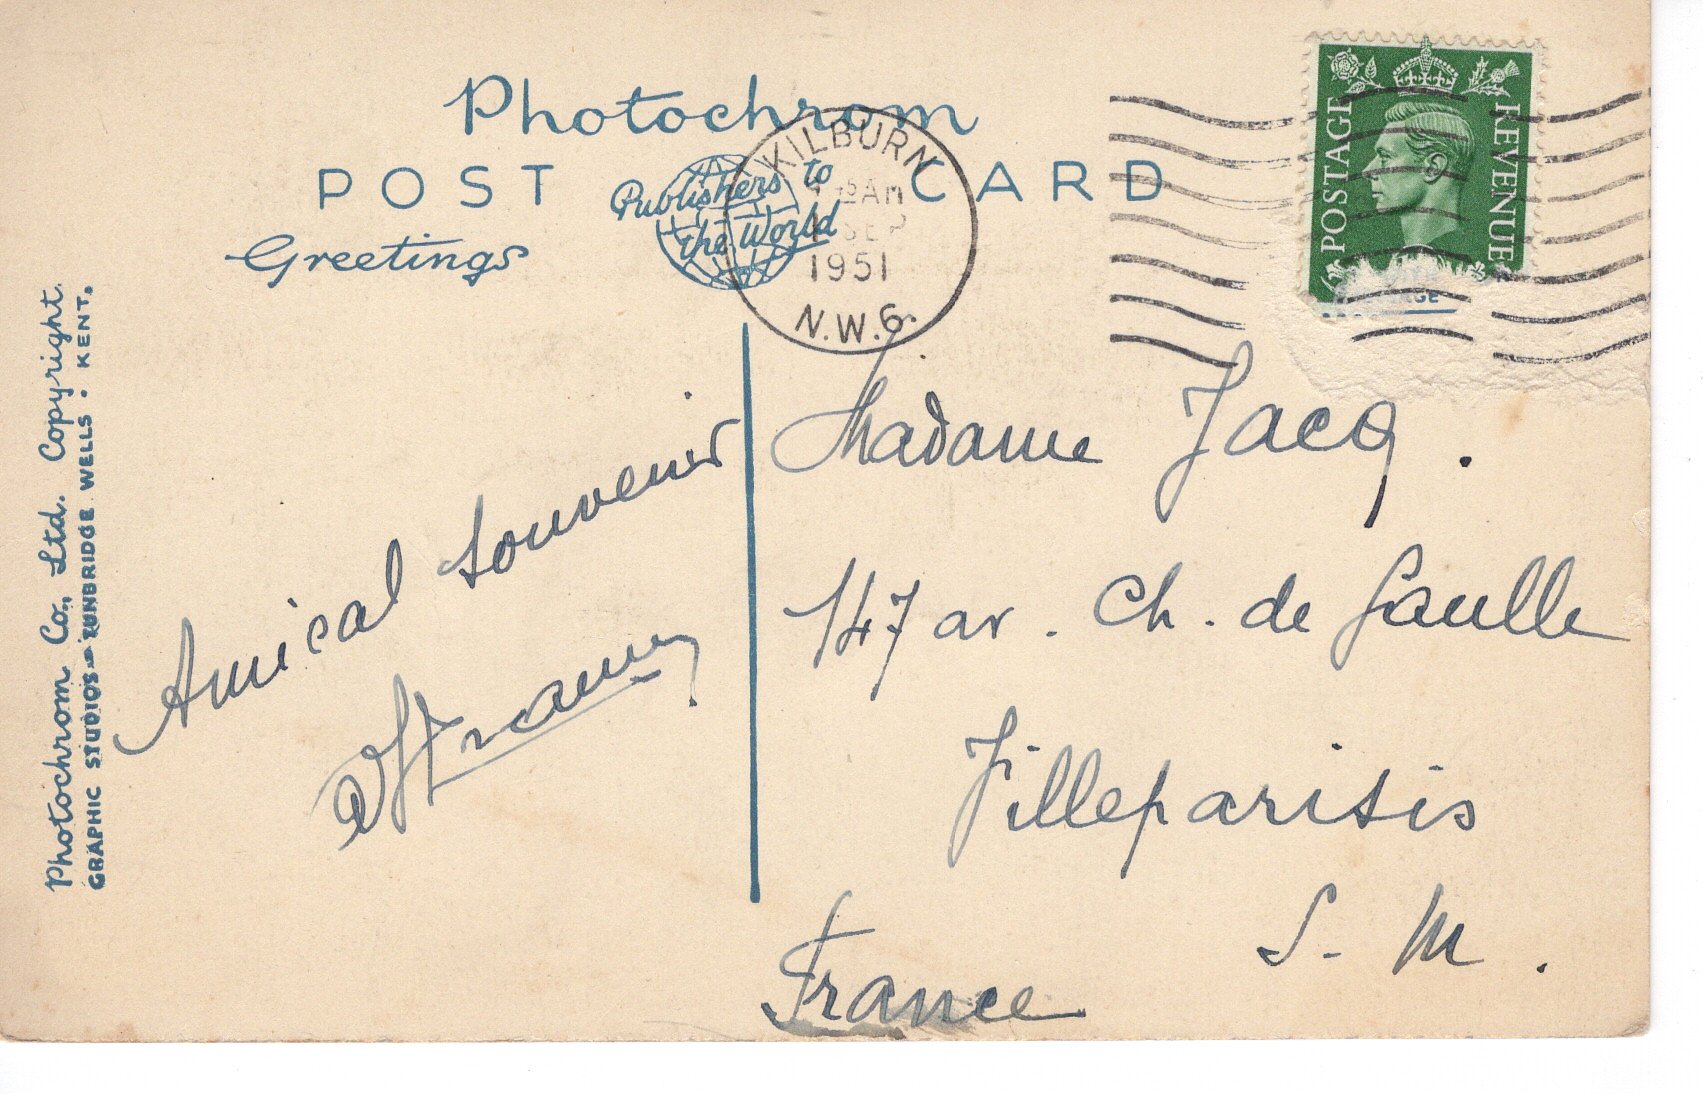 Photochrom
POST CARD
Publishers to
the World
Greetings
KILBURN
AM
SEP
1951
N.W.6.
POSTAGE
REVENUE
Photochrom Co., Ltd. Copyright.
GRAPHIC STUDIOS - TUNBRIDGE WELLS · KENT.
Amical souvenir
Madame Jacq.
147 av. Ch. de Gaulle
Villeparisis
S. M.
France